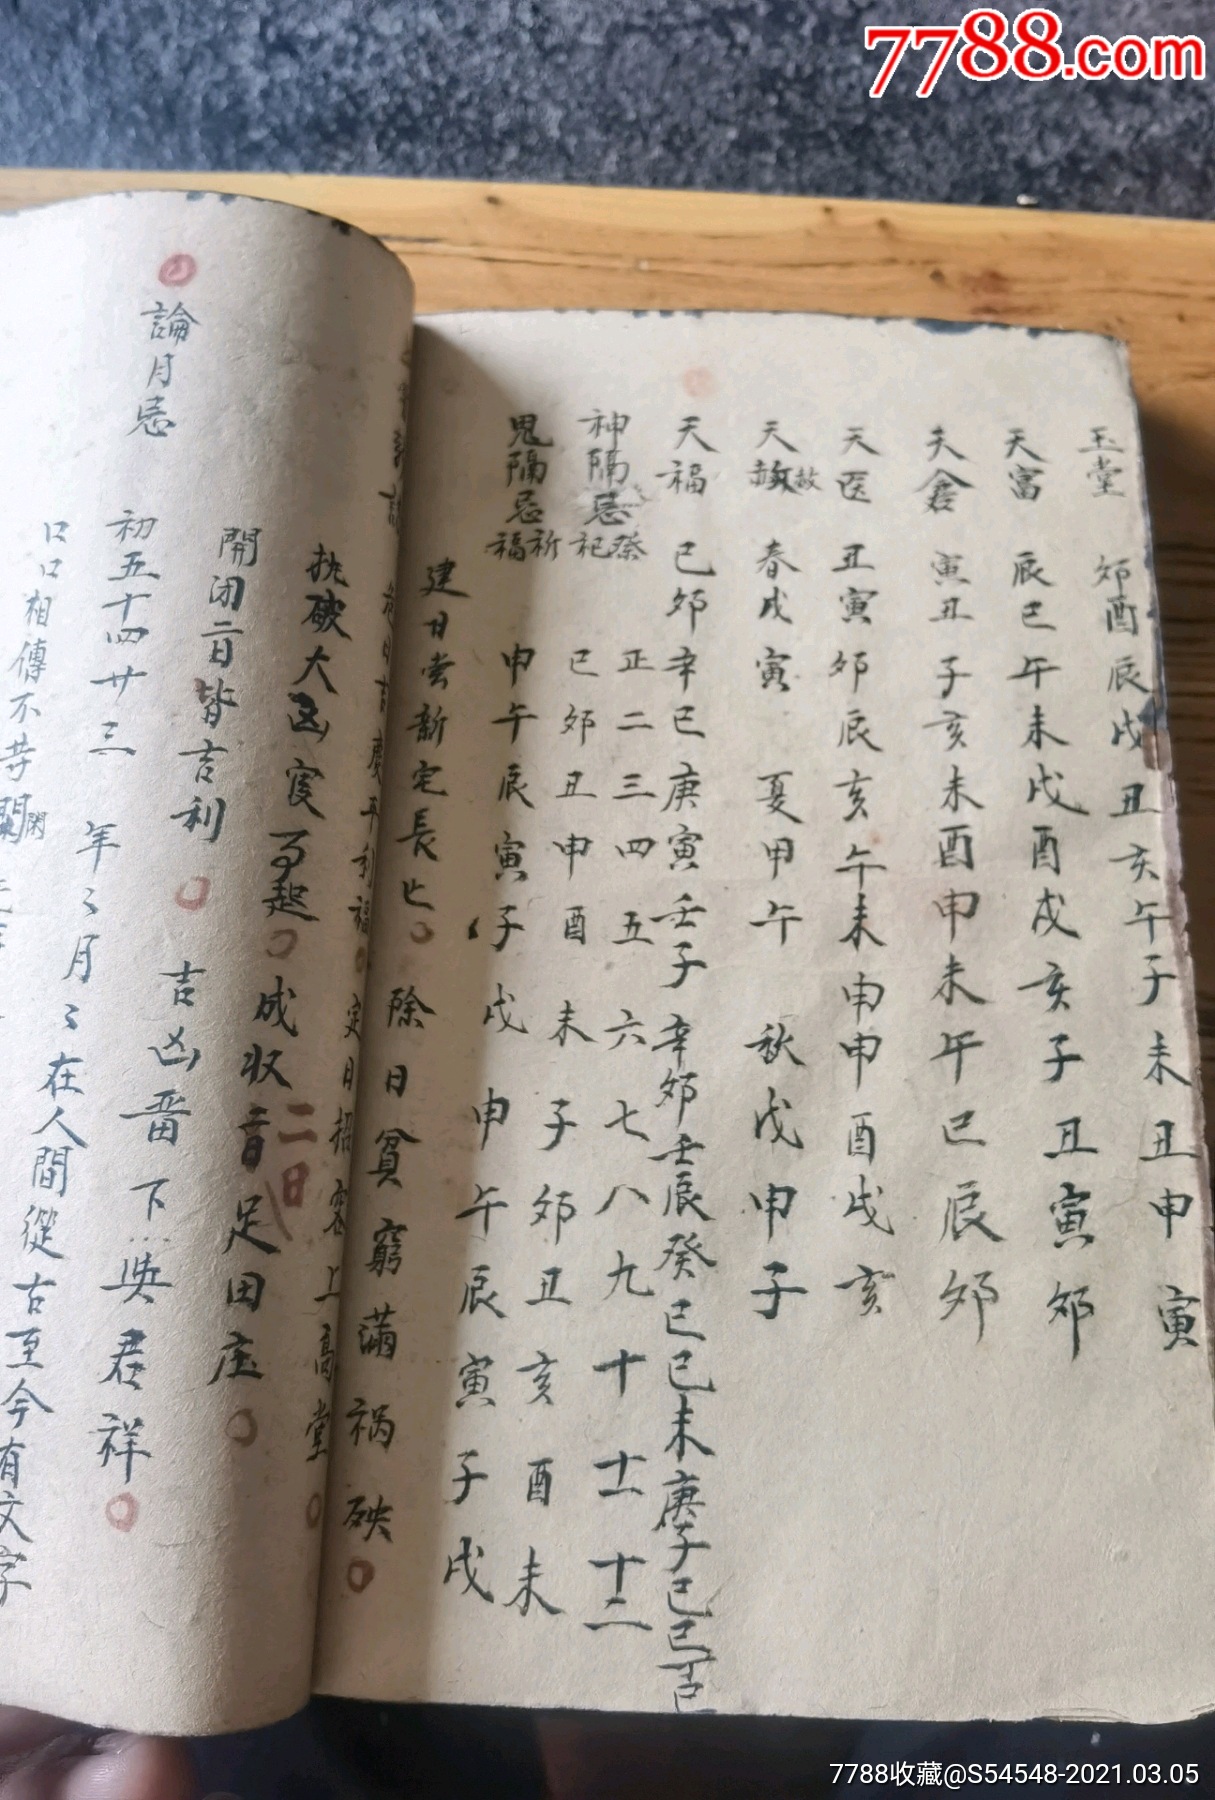 7788.com
玉堂 卯酉辰戌丑亥午子未丑申寅
天富 辰巳午未戌酉戌亥子丑寅卯
天倉 寅丑子亥未酉申未午巳辰卯
天医 丑寅卯辰亥午未申申酉戌亥
天赦 赦 春戊寅 夏甲午 秋戊申子
天福 己卯辛巳庚寅壬子辛卯壬辰癸巳己未庚子己巳丁
神隔忌祭祀 正二三四五六七八九十十一十二
巳卯丑申酉未子卯丑亥酉未
鬼隔忌祈福 申午辰寅子戌申午辰寅子戌
建日 新宅長 除日貧窮滿祸殃
定日 上高堂
執破大凶 起 成收二日足田庄
開闭二日皆吉利 吉凶 下 君祥
論月忌 初五十四廿三 年〻月〻在人間從古至今有文字
口口相傳不
7788收藏@S54548-2021.03.05